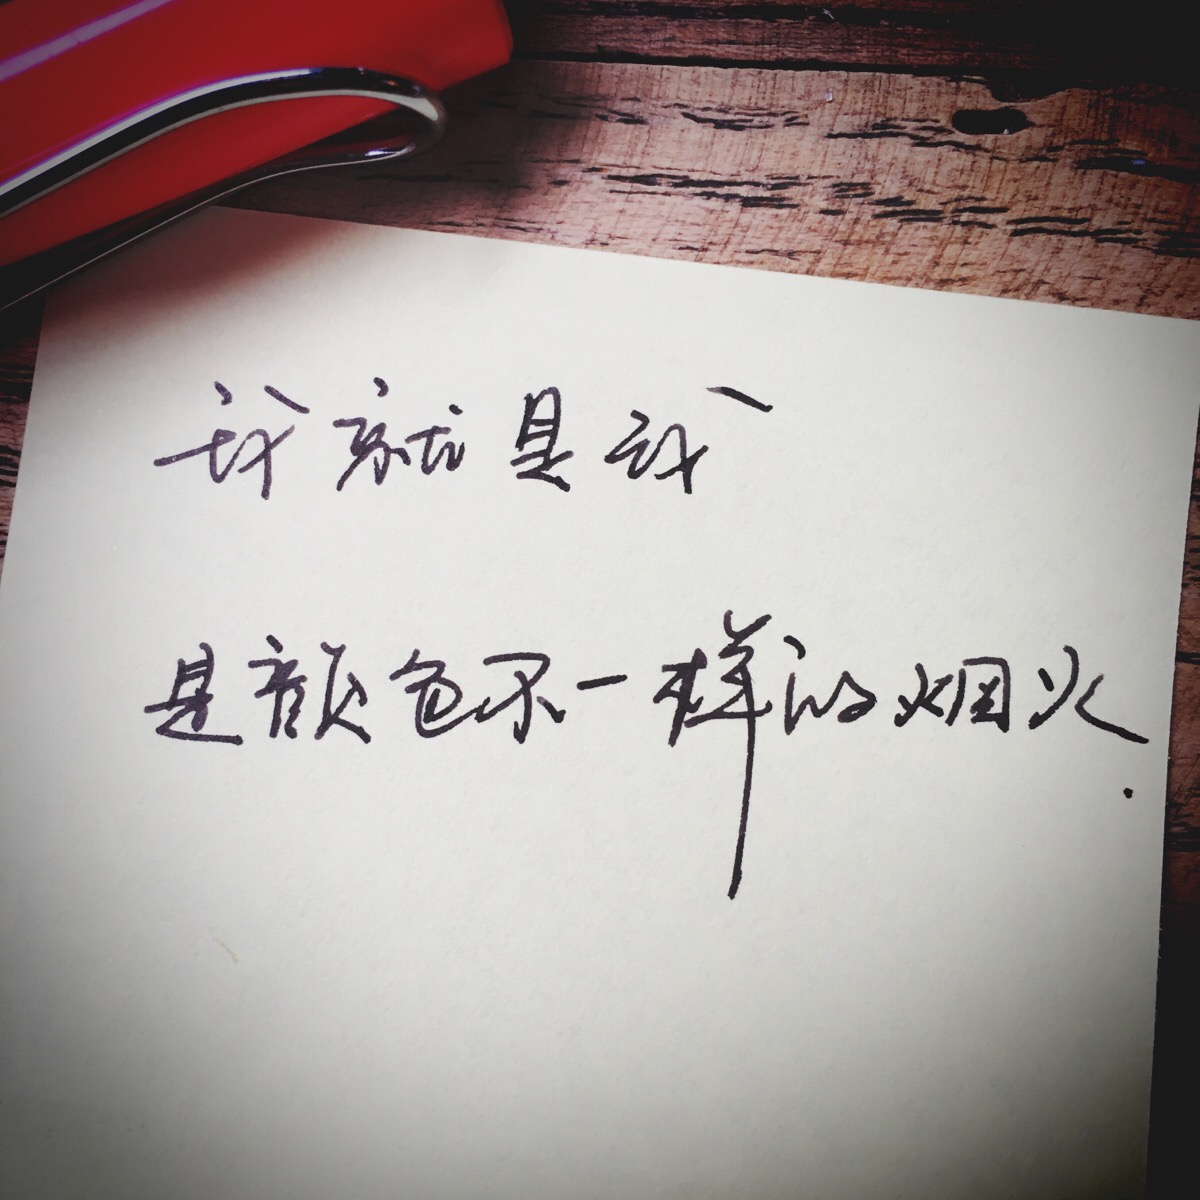 我就是我
是颜色不一样的烟火.